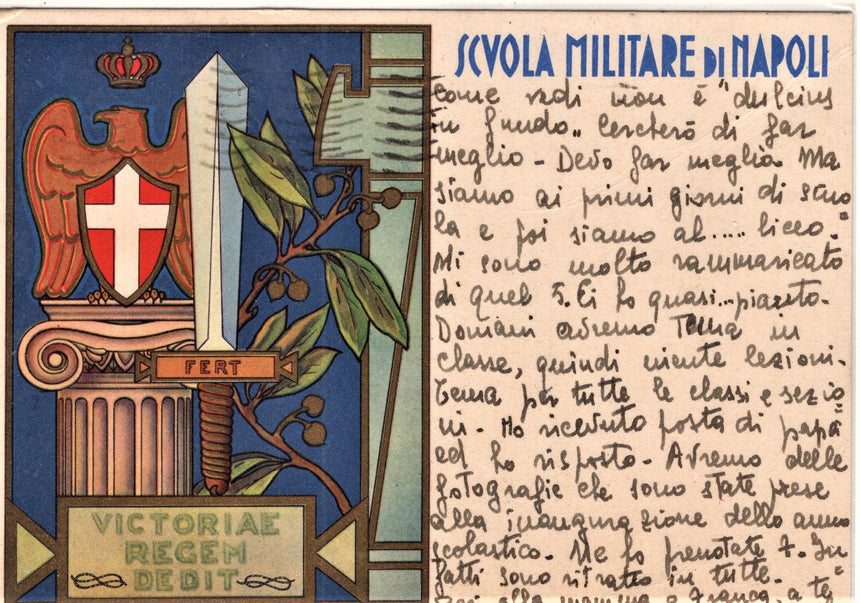 SCVOLA MILITARE DI NAPOLI
FERT
VICTORIAE
REGEM
DEDIT
come vedi non è "dulcius
in fundo„ Cercherò di far
meglio - Devo far meglio Ma
siamo ai primi giorni di scuo
la e poi siamo al..... liceo.
Mi sono molto rammaricato
di quel 5. Ci ho quasi...pianto-
Domani avremo Tema in
classe, quindi niente lezioni-
Tema per tutte le classi e sezio
ni - Ho ricevuto posta di papà
ed ho risposto - Avremo delle
fotografie che sono state prese
alla inaugurazione dello anno
scolastico. Me ho prenotate 7. In
fatti sono ritratto in tutte.-
alla mamma a Franca, a te